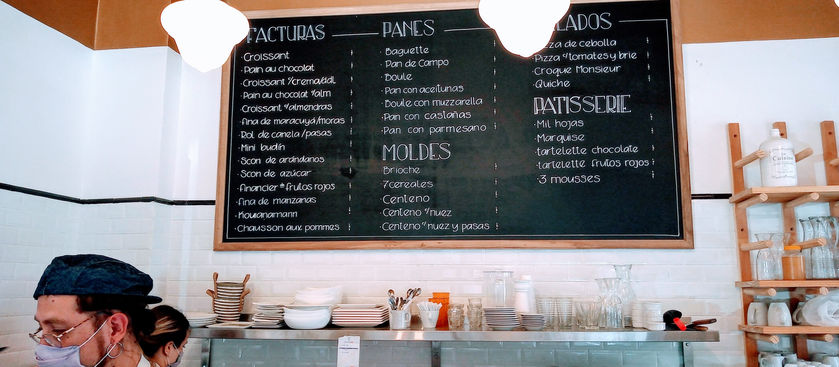 FACTURAS
· Croissant
· Pain au chocolat
· Croissant c/crema/ddl
· Pain au chocolat c/alm
· Croissant c/almendras
· fina de maracuyá/moras
· Rol de canela/pasas
· Mini budín
· Scon de arándanos
· Scon de azúcar
· Financier frutos rojos
· fina de manzanas
· Kouanamann
· Chausson aux pommes
PANES
· Baguette
· Pan de Campo
· Boule
· Pan con aceitunas
· Boule con muzzarella
· Pan con castañas
· Pan con parmesano
MOLDES
Brioche
· 7 cereales
· Centeno
· Centeno c/nuez
· Centeno c/ nuez y pasas
LADOS
de cebolla
· Pizza c/tomates y brie
· Croque Monsieur
· Quiche
PATISSERIE
· Mil hojas
· Marquise
· tartelette chocolate
· tartelette frutos rojos
· 3 mousses